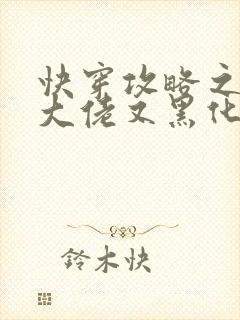 快穿攻略之
大佬又黑化
鈴木快